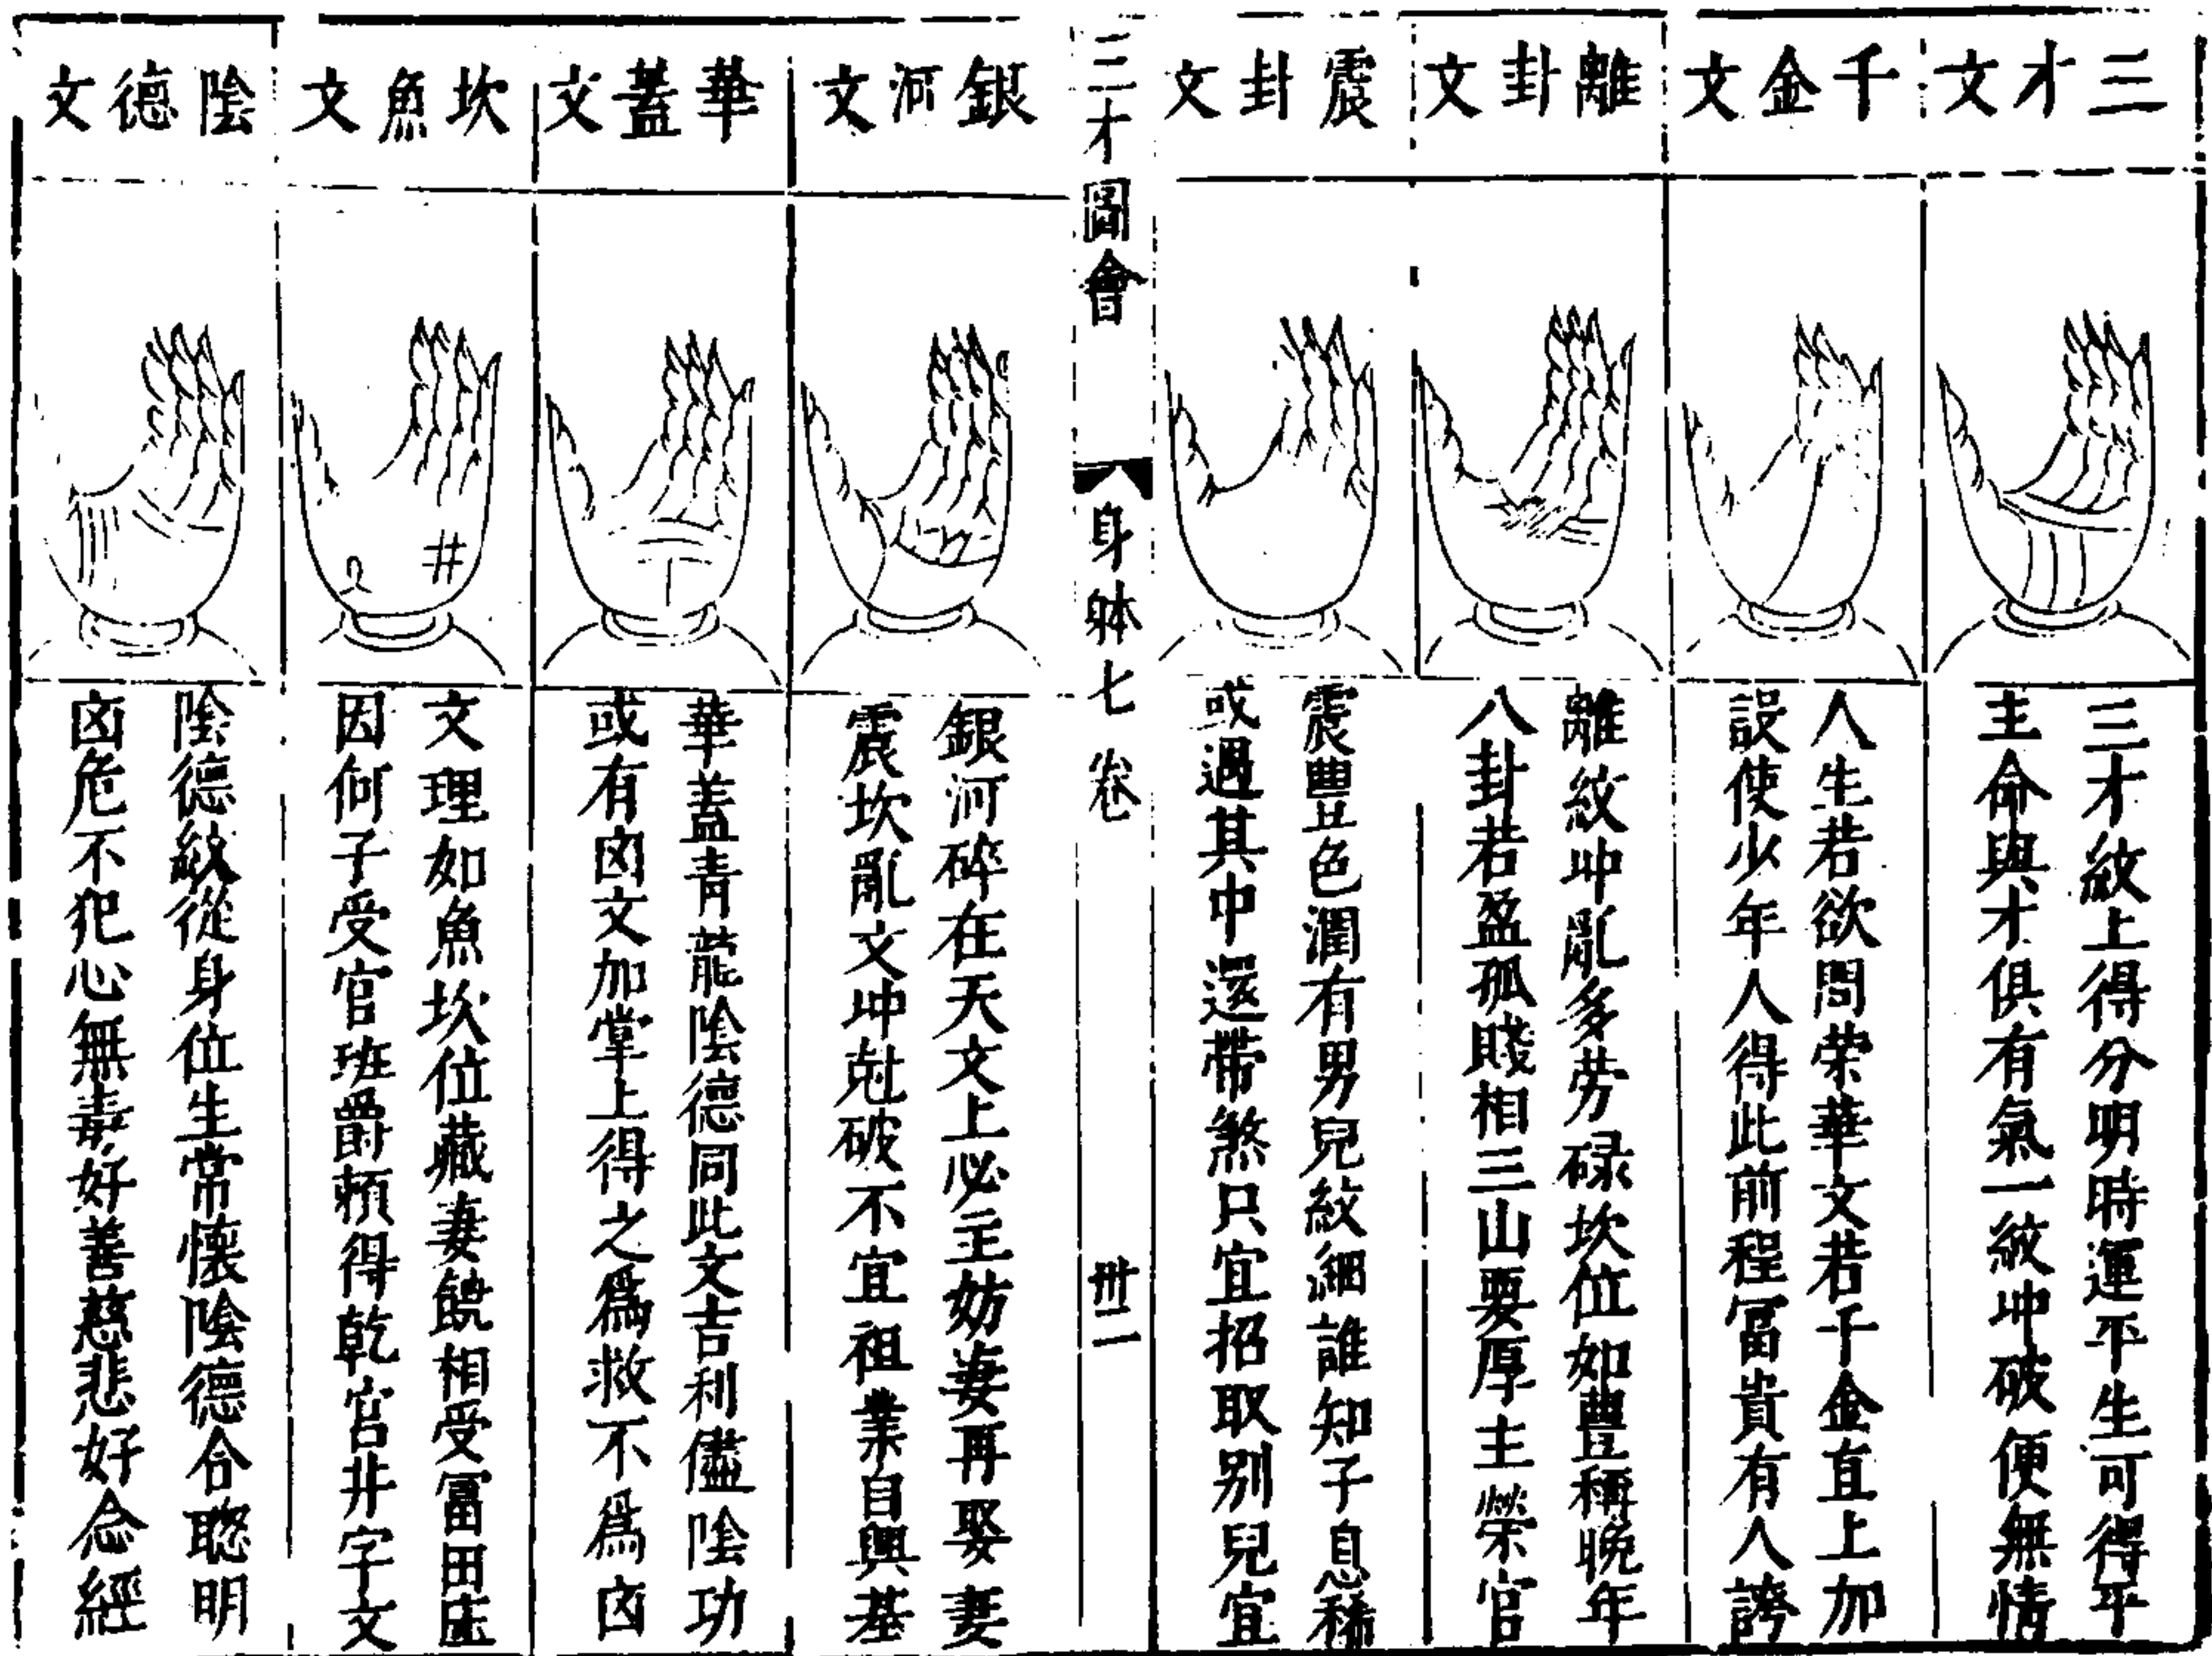 三才文
三才紋上得分明時運平生可得平
主命與才俱有氣一紋冲破便無情
千金文
人生若欲問荣華文若千金直上加
設使少年人得此前程冨貴有人誇
離卦文
離紋冲亂多劳碌坎位如豊稱晚年
八卦若盈孤賤相三山要厚主榮官
震卦文
震豊色潤有男兒紋細誰知子息稀
或過其中還帶煞只宜招取别兒宜
三才圖會
身躰七卷
卅二
銀河文
銀河碎在天文上必主妨妻再娶妻
震坎亂文冲尅破不宜祖業自興基
華蓋文
華蓋青龍陰德同此文吉利儘陰功
或有凶文加掌上得之爲救不爲凶
坎魚文
文理如魚坎位藏妻饒相受冨田庄
因何子受官班爵頼得乾宫井字文
陰德文
陰德紋從身位生常懷陰德合聰明
凶危不犯心無毒好善慈悲好念經